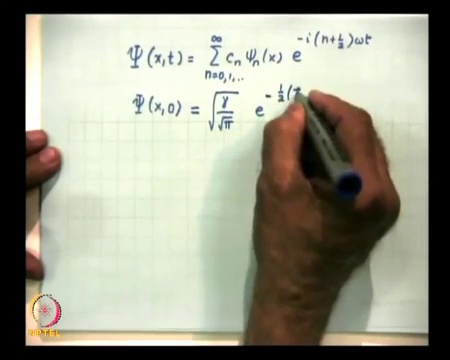 Ψ(x,t) = ∑_{n=0,1,...}^{∞} c_n ψ_n(x) e^{-i(n+½)ωt}
Ψ(x,0) = √(γ/√π) e^{-½(
NPTEL